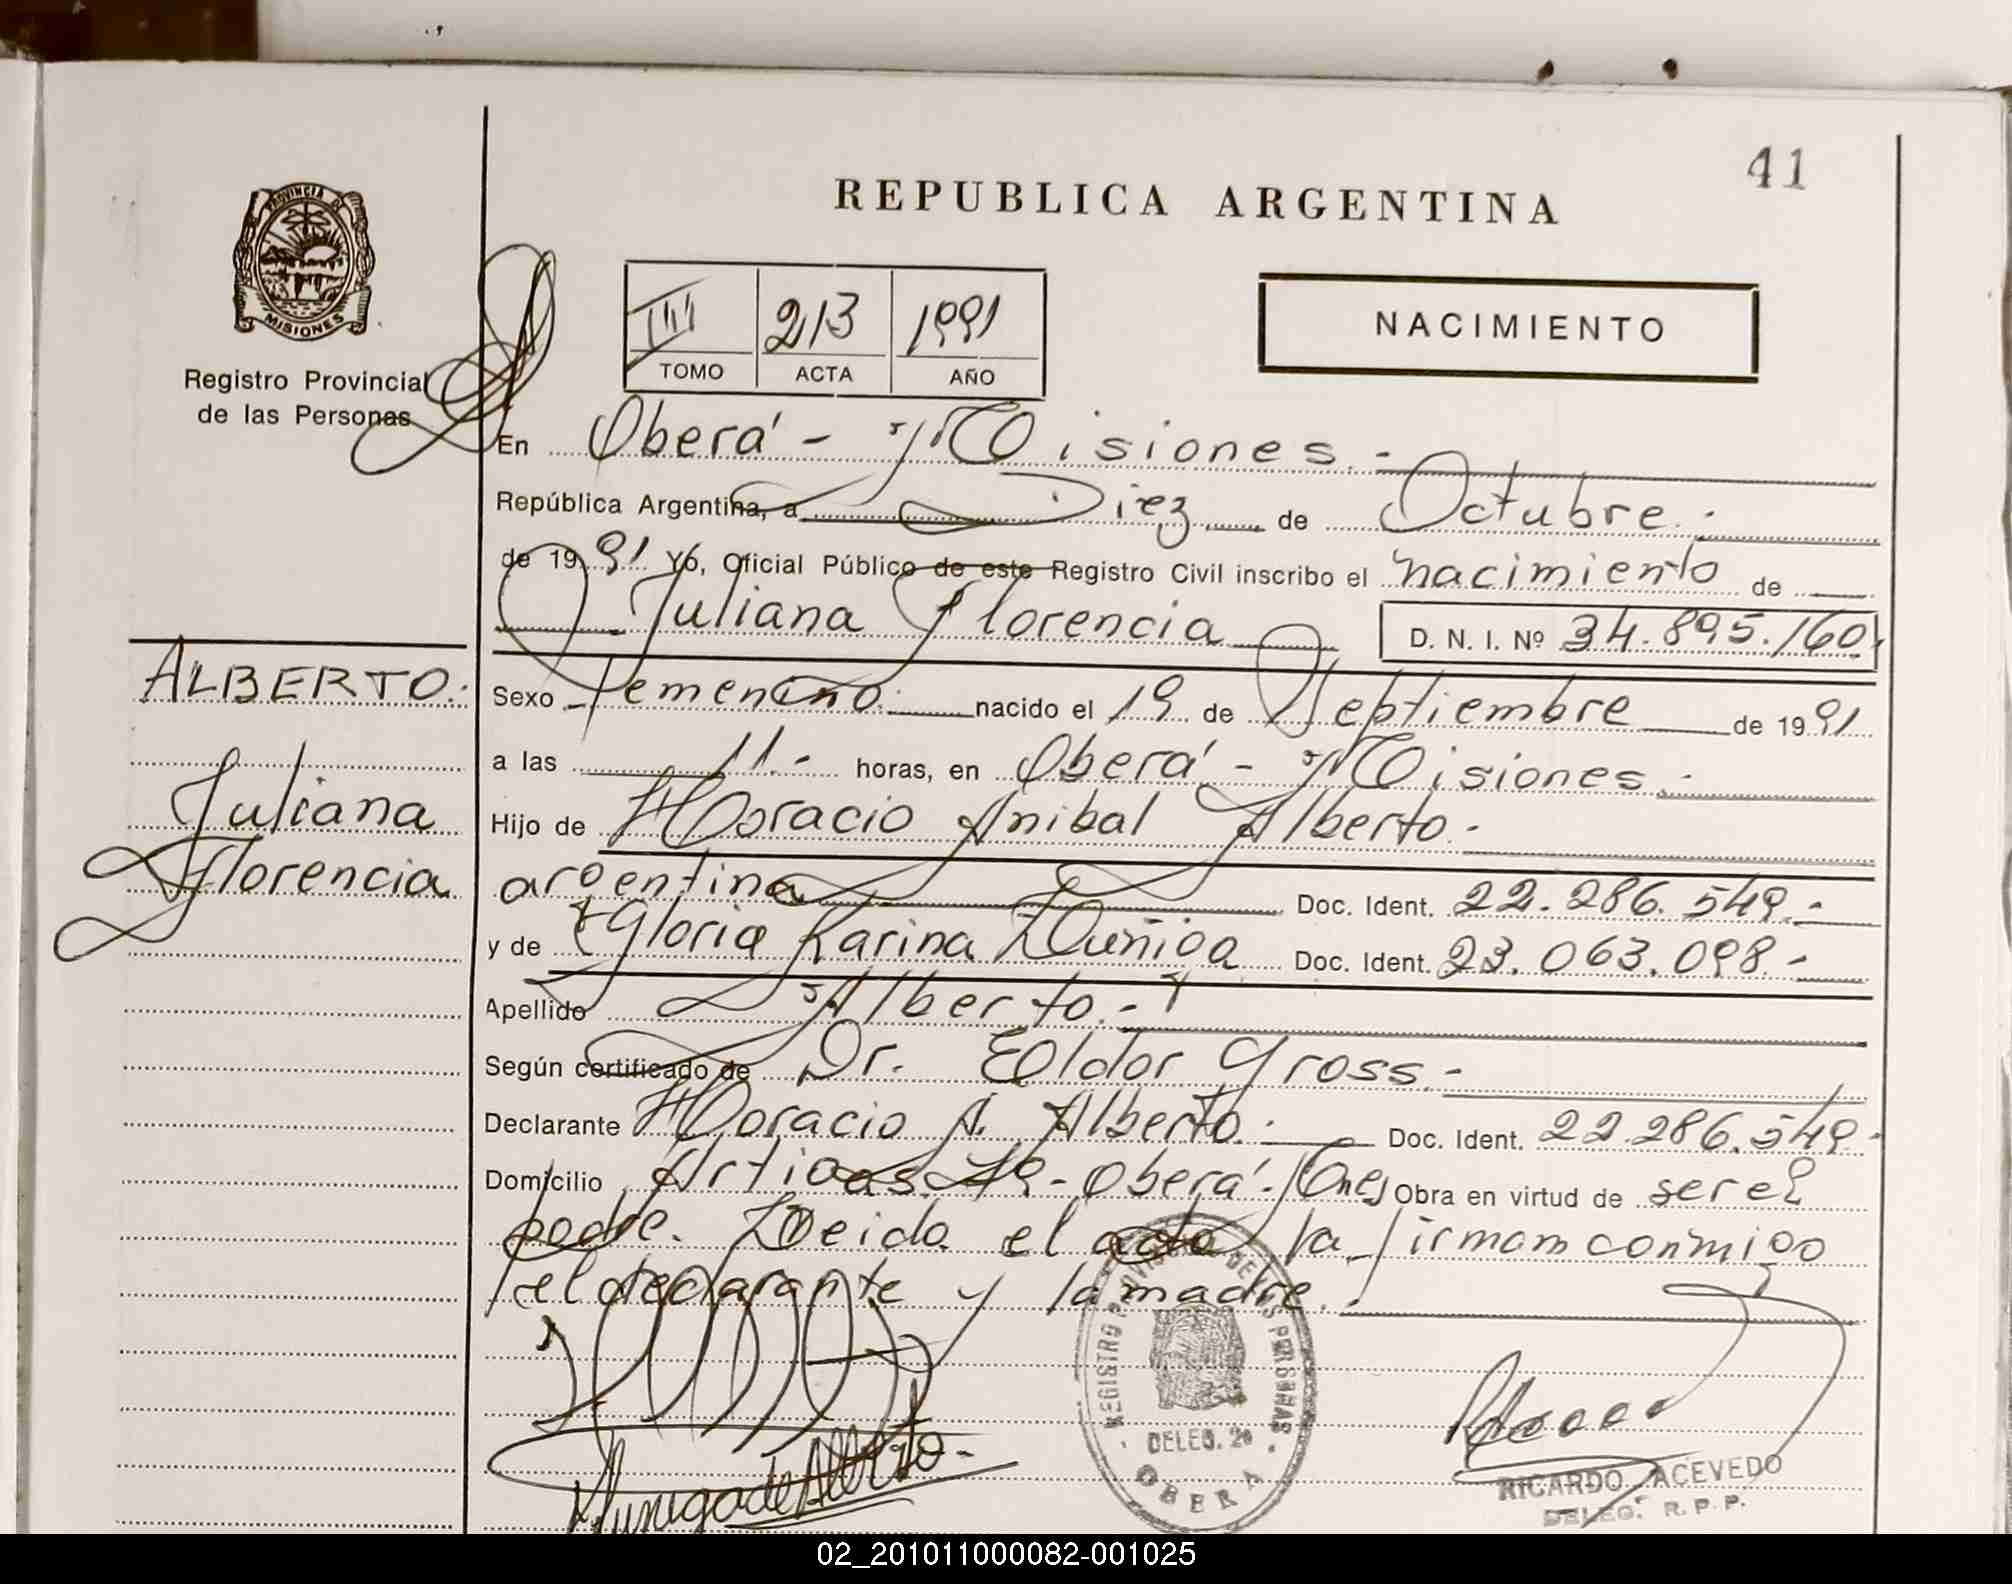 41
REPUBLICA ARGENTINA
PROVINCIA DE
MISIONES
Registro Provincial
de las Personas
III 213 1991
TOMO ACTA AÑO
NACIMIENTO
En Oberá - Misiones.-
República Argentina, a Diez de Octubre.-
de 1991 Yó, Oficial Público de este Registro Civil inscribo el nacimiento de
Juliana Florencia D. N. I. Nº 34.895.160.
ALBERTO.
Juliana
Florencia
Sexo femenino. nacido el 19 de Septiembre de 1991
a las 11.- horas, en Oberá - Misiones.
Hijo de Horacio Anibal Alberto.-
argentina Doc. Ident. 22.286.549.-
y de Gloria Karina Zuñiga Doc. Ident. 23.063.098.-
Apellido Alberto.-
Según certificado de Dr. Eldor Gross.-
Declarante Horacio A. Alberto. Doc. Ident. 22.286.549.
Domicilio Artigas - Oberá - Mnes Obra en virtud de ser el
padre. Leida el acta la firman conmigo
el declarante y la madre.
Zunigade Alberto.-
REGISTRO PROVINCIAL DE LAS PERSONAS
DELEG. 2a
OBERA
RICARDO ACEVEDO
DELEG. R. P. P.
02_201011000082-001025